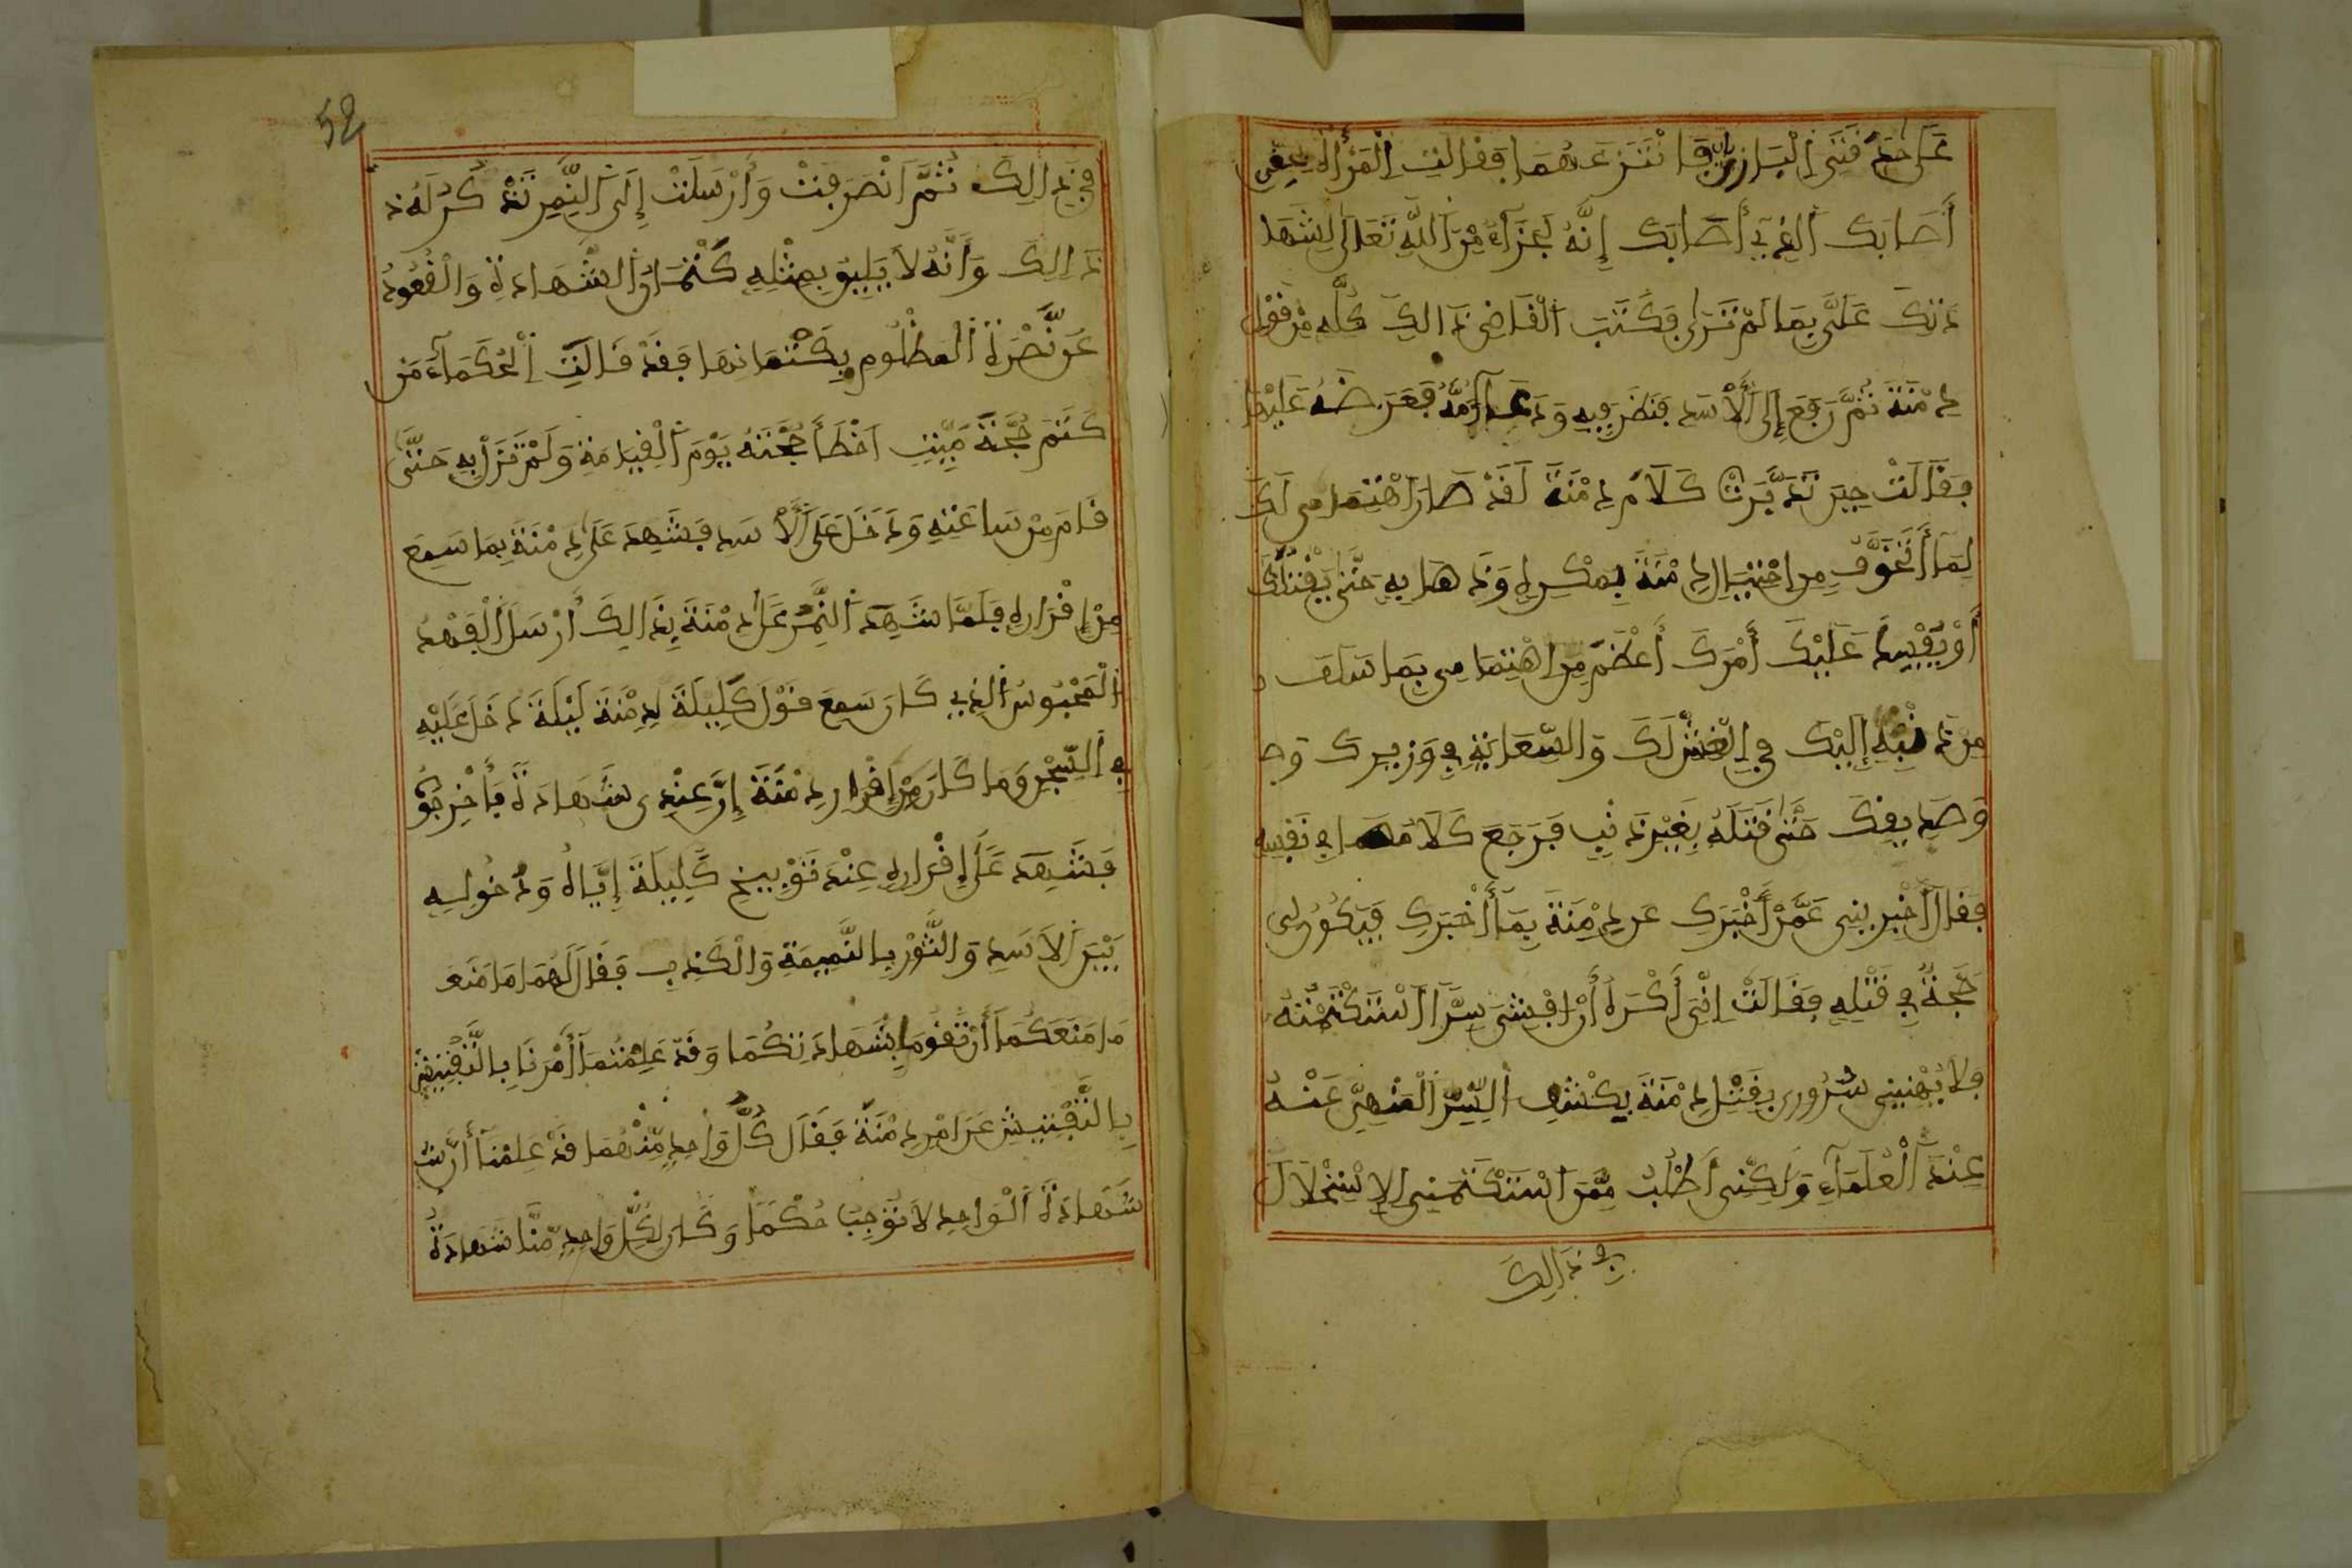 على حدفتى البازي فانتزعهما فقالت المرأة بحق
أصابك الذي أصابك إنه لجزاء من الله تعالى لشها
دتك علي بما لم تر فكتب القاضي ذالك كله من قول
دمنة ثم رفع إلى الأسد فنظر فيه ودعا أمه فعرضه عليها
فقالت حين تدبرت كلام دمنة لقد صار اهتمامي لك
لما أتخوف من احتيال دمنة بمكره ودهايه حتى يقتلك
أو يفسد عليك أمرك أعظم من اهتمامي بما سلف
من ذنبه إليك في الغش لك والسعاية في وزيرك وص
وصديقك حتى قتله بغير ذنب فرجع كلامها في نفسه
فقال أخبريني عمن أخبرك عن دمنة بما أخبرك فيكون لي
حجة في قتله فقالت اني أكره أن افشي سر استكتمته
فلا يهنيني سروري بقتل دمنة بكشف السر المنهي عنه
عند العلماء ولكني أطلب ممن استكتمني الاستحلال
في ذالك
52
في ذالك ثم انصرفت وأرسلت إلى النمر تذكر له ذ
ذالك وأنه لا يليق بمثله كتمان الشهادة والقعود
عن نصرة المظلوم بكتمانها فقد قالت الحكماء من
كتم حجة ميت اخطأ حجته يوم القيامة ولم تزل به حتى
قام من ساعته ودخل على الأسد فشهد على دمنة بما سمع
من اقراره فلما شهد النمر على دمنة بذالك أرسل الفهد
المحبوس الذي كان سمع قول كليلة لدمنة ليلة دخل عليه
في السجن وما كان من إقرار دمنة إن عندي شهادة فأخرجو
فشهد على إقراره عند توبيخ كليلة إياه ودخوله
بين الاسد والثور بالنميمة والكذب فقال لهما ما منع
ما منعكما أن تقوما بشهادتكما وقد علمتما أمرنا بالتفتيش
بالتفتيش عن امر دمنة فقال كل واحد منهما قد علمنا أن ش
شهادة الواحد لا توجب حكما وكان لكل واحد منا شهادة